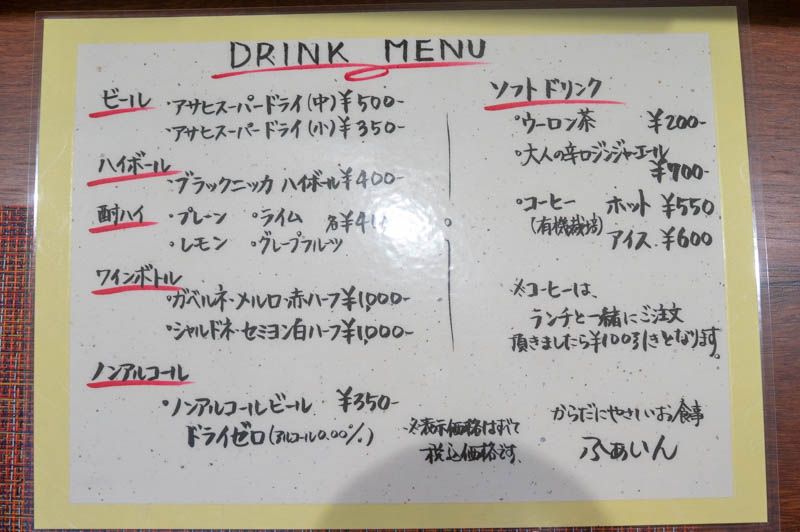 DRINK MENU
ビール
・アサヒスーパードライ(中)¥500-
・アサヒスーパードライ(小)¥350-
ハイボール
・ブラックニッカ ハイボール¥400-
酎ハイ
・プレーン ・ライム 各¥4
・レモン ・グレープフルツ
ワインボトル
・ガベルネ・メルロ・赤ハーフ¥1,000-
・シャルドネ・セミヨン白ハーフ¥1,000-
ノンアルコール
・ノンアルコールビール ¥350-
ドライゼロ(アルコール0.00%)
ソフトドリンク
・ウーロン茶 ¥200-
・大人の辛口ジンジャーエール
¥700-
・コーヒー ホット ¥550
(有機栽培) アイス ¥600
※コーヒーは、
ランチと一緒にご注文
頂きましたら¥100引きとなります。
※表示価格はすべて
税込価格です。
からだにやさしいお食事
ふぁいん